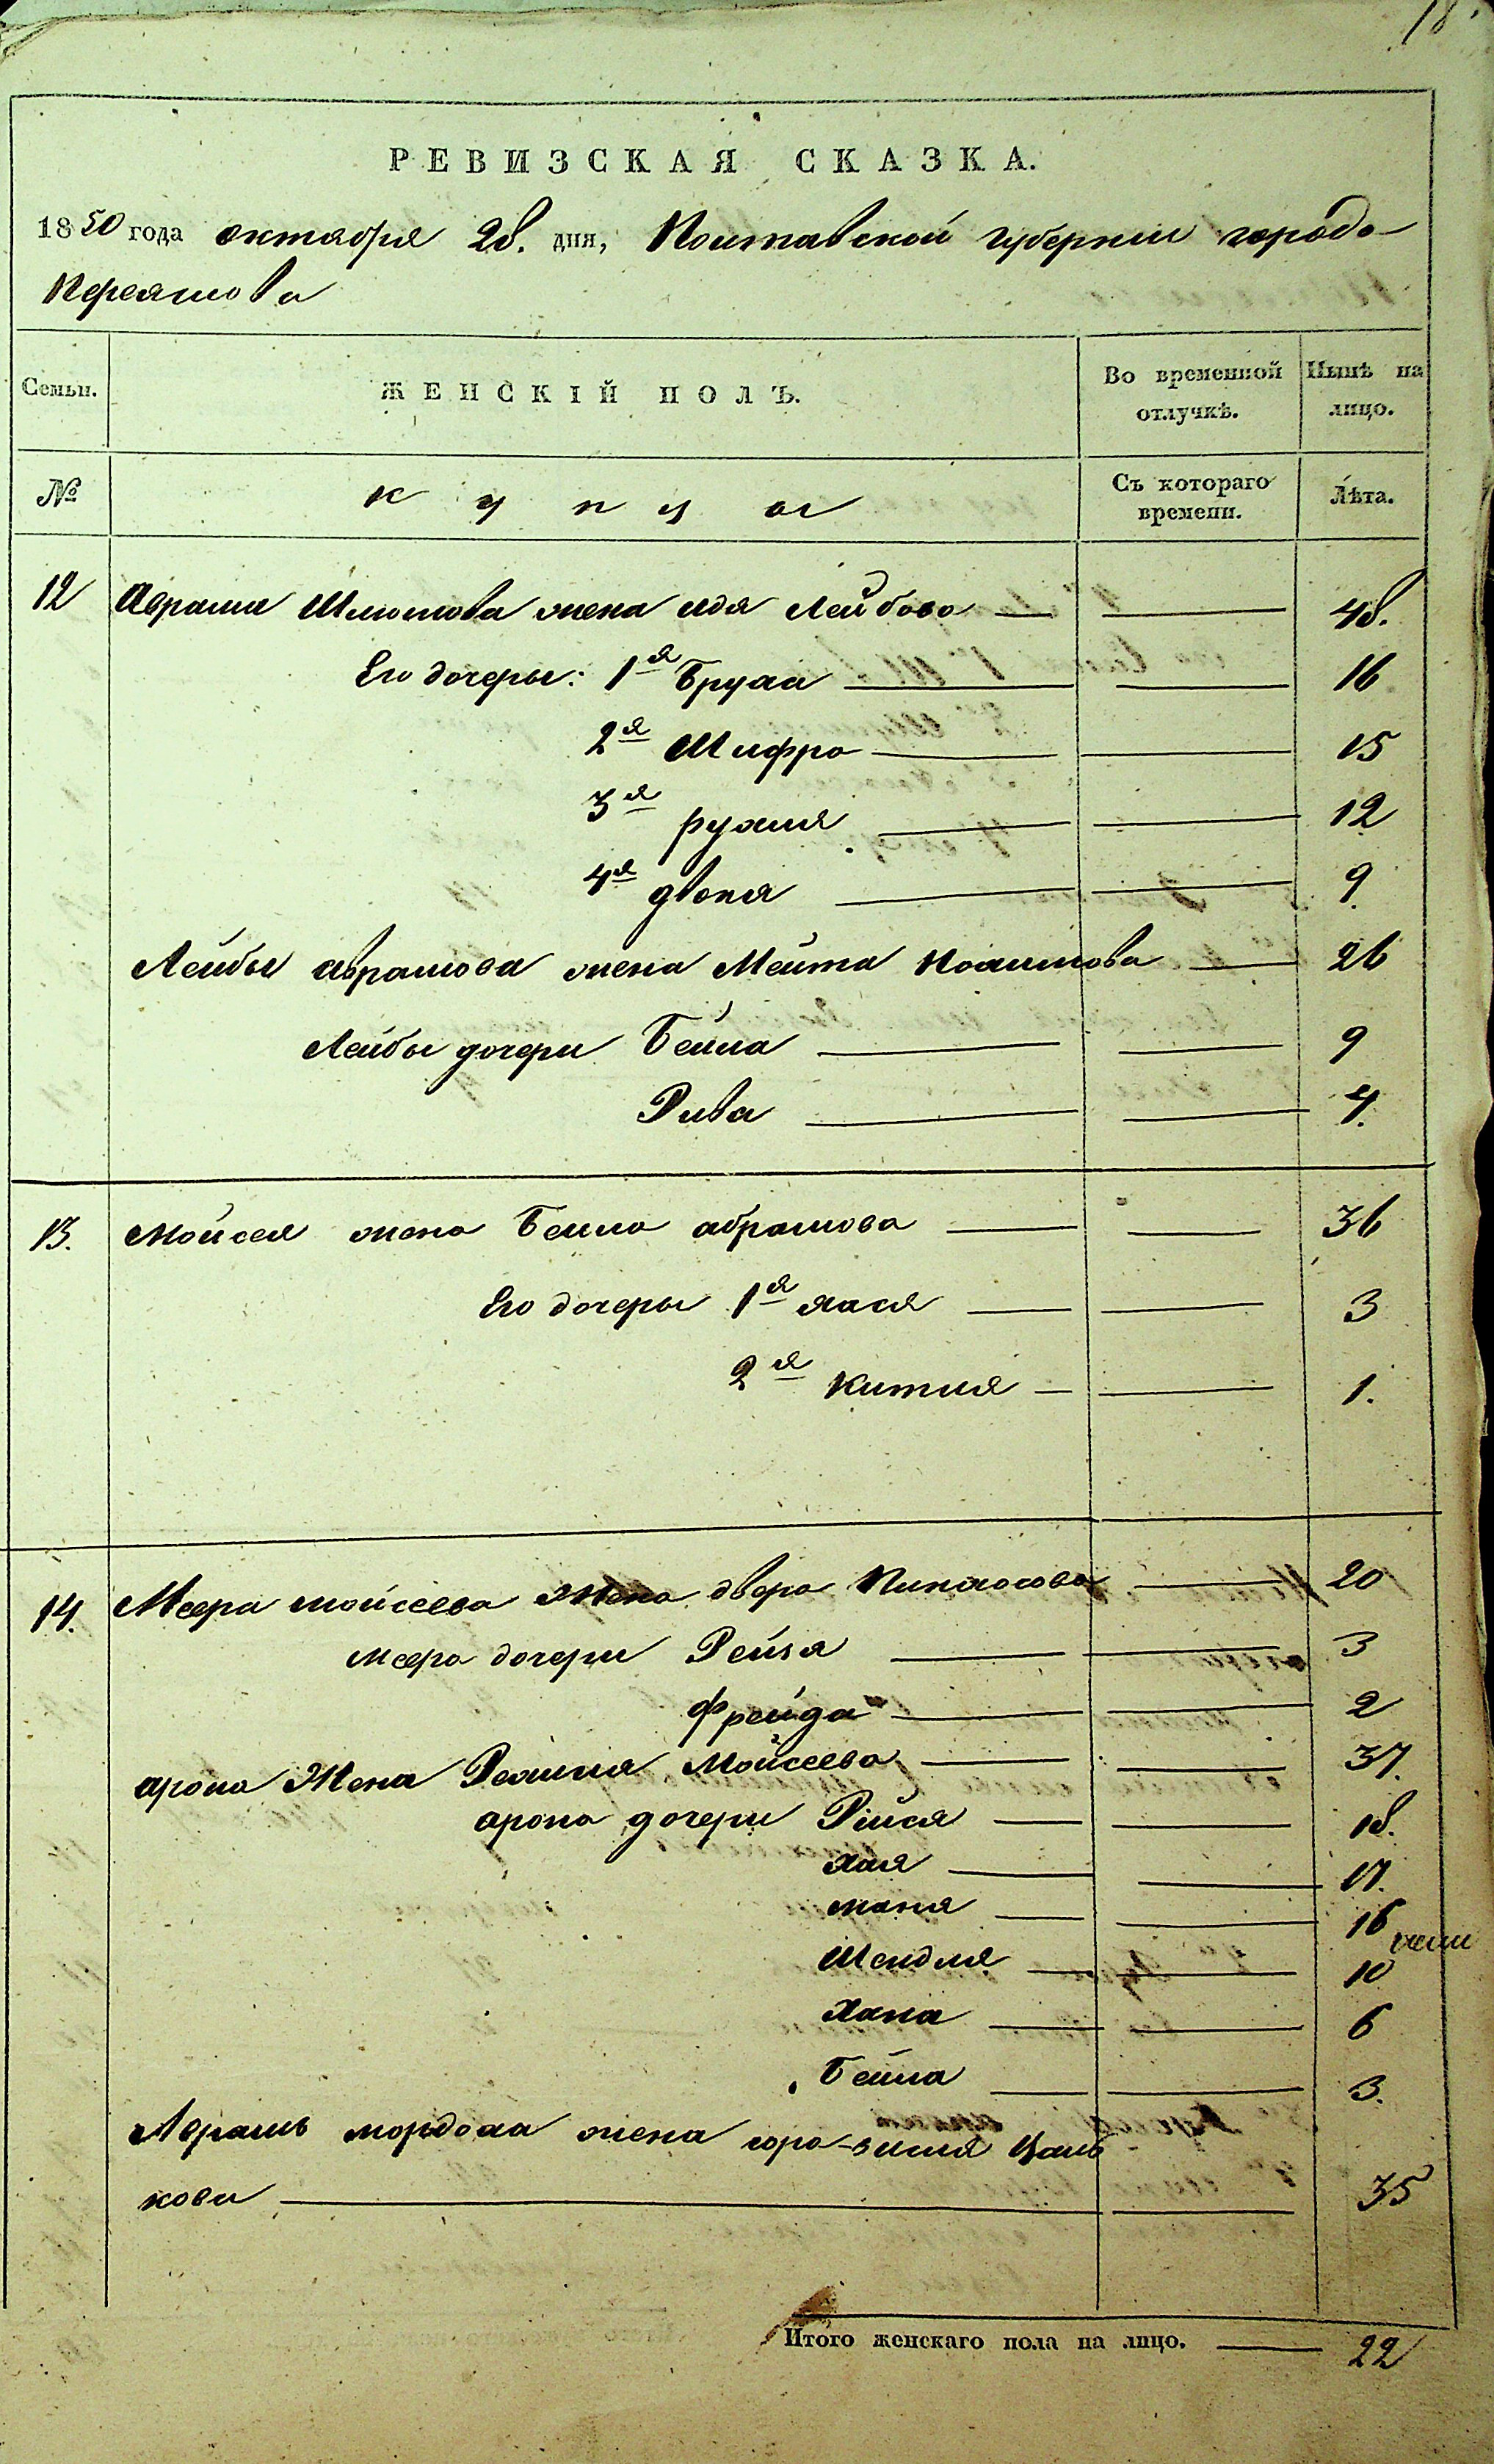 18.
РЕВИЗСКАЯ СКАЗКА.
1850 года октября 28. дня, Полтавской губернии города
Переяслова
Семьи. ЖЕНСКІЙ ПОЛЪ. Во временной отлучкѣ. Нынѣ на лицо.
№ Купцы Съ котораго времени. Лѣта.
12 Аврама Шлиомова жена Идя Лейбова — — 48.
Его дочеры: 1я Бруха — — 16
2я Шифра — — 15
3я рухля — — 12
4я двоня — — 9.
Лейбы аврамова жена Мейта — 26
Лейбы дочери Бейла — — 9
Рива — — 4.
13. Мойсея жена Бейла абрамова — — 36
Его дочеры 1я хася — — 3
2я Китля — — 1.
14. Меера мойсеева Жена двера Пинхосова — 20
меера дочери Рейзя — — 3
фрейда — — 2
арона Жена Мойсеева — — 37.
арона дочери Рийся — — 18.
Хая — — 17.
маня — — 16
Шейдля — — 10
Хана — — 6
Бейла — — 3.
Аврамъ мордоха жена сора-зисля
кова — — 35
Итого женскаго пола на лицо. — 22